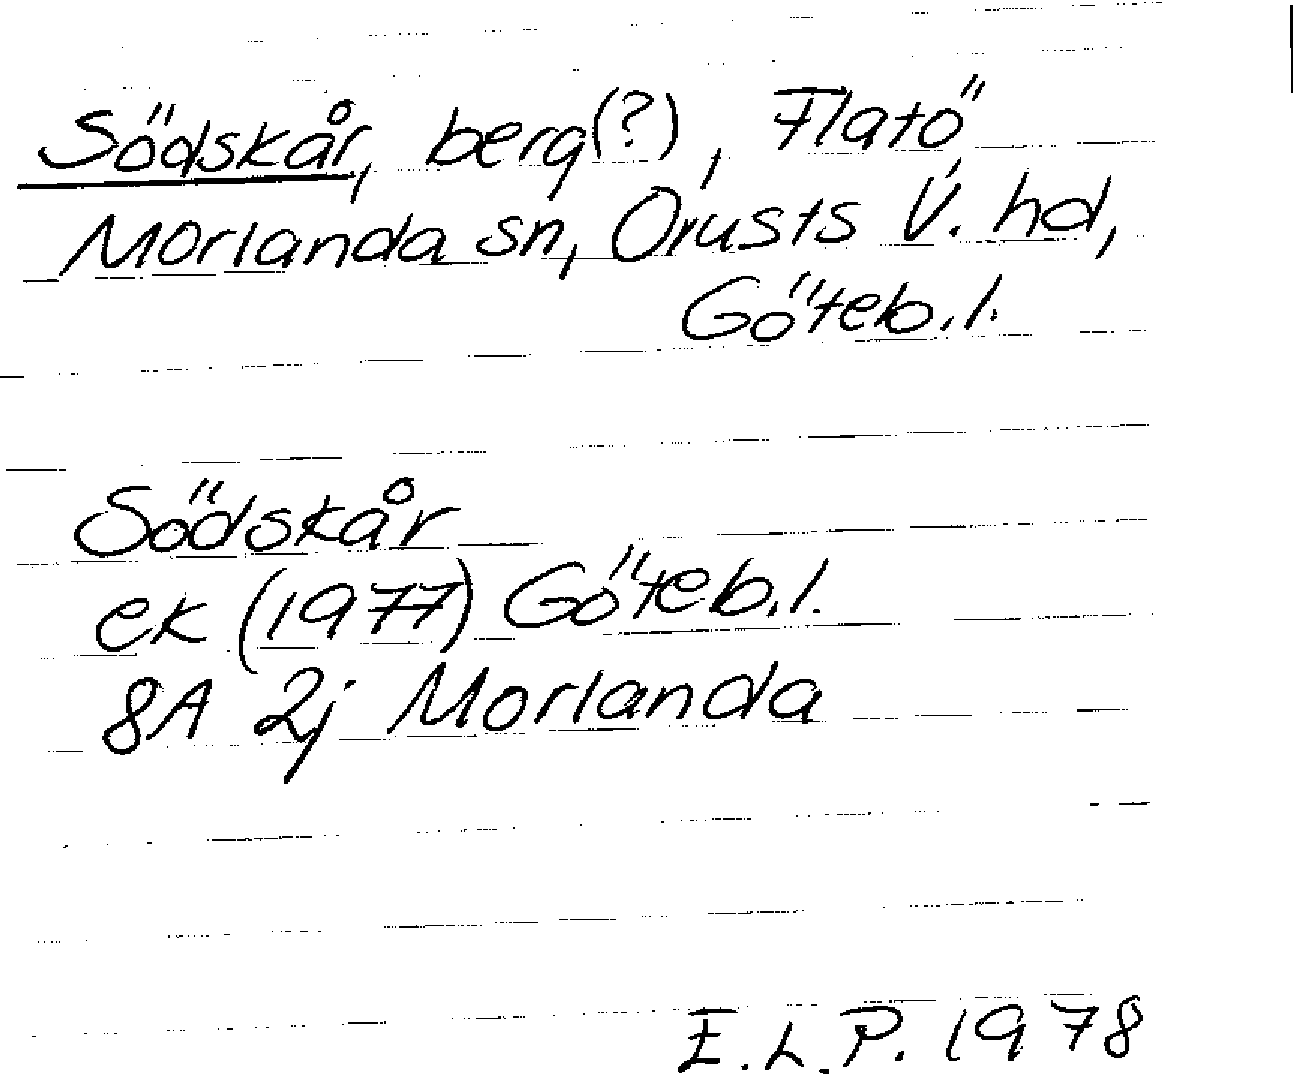 Södskår, berg(?), Flatö,
Morlanda sn, Orusts V. hd,
Göteb. l.
Södskår
ek (1977) Göteb. l.
8A 2j Morlanda
E. L. P. 1978